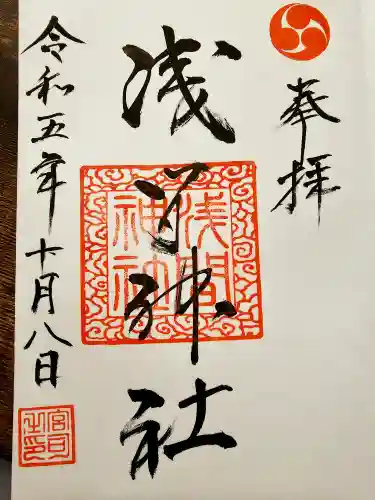 奉拝
浅間神社
浅間
神社
令和五年十月八日
宮司
之印